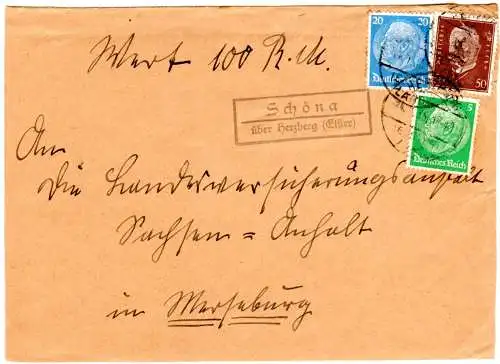 Wert 100 R.M.
20 20
Deutsches
50
5
Deutsches Reich
Schöna
über Herzberg (Elster)
An
die Landesversicherungsanstalt
Sachsen = Anhalt
in Merseburg